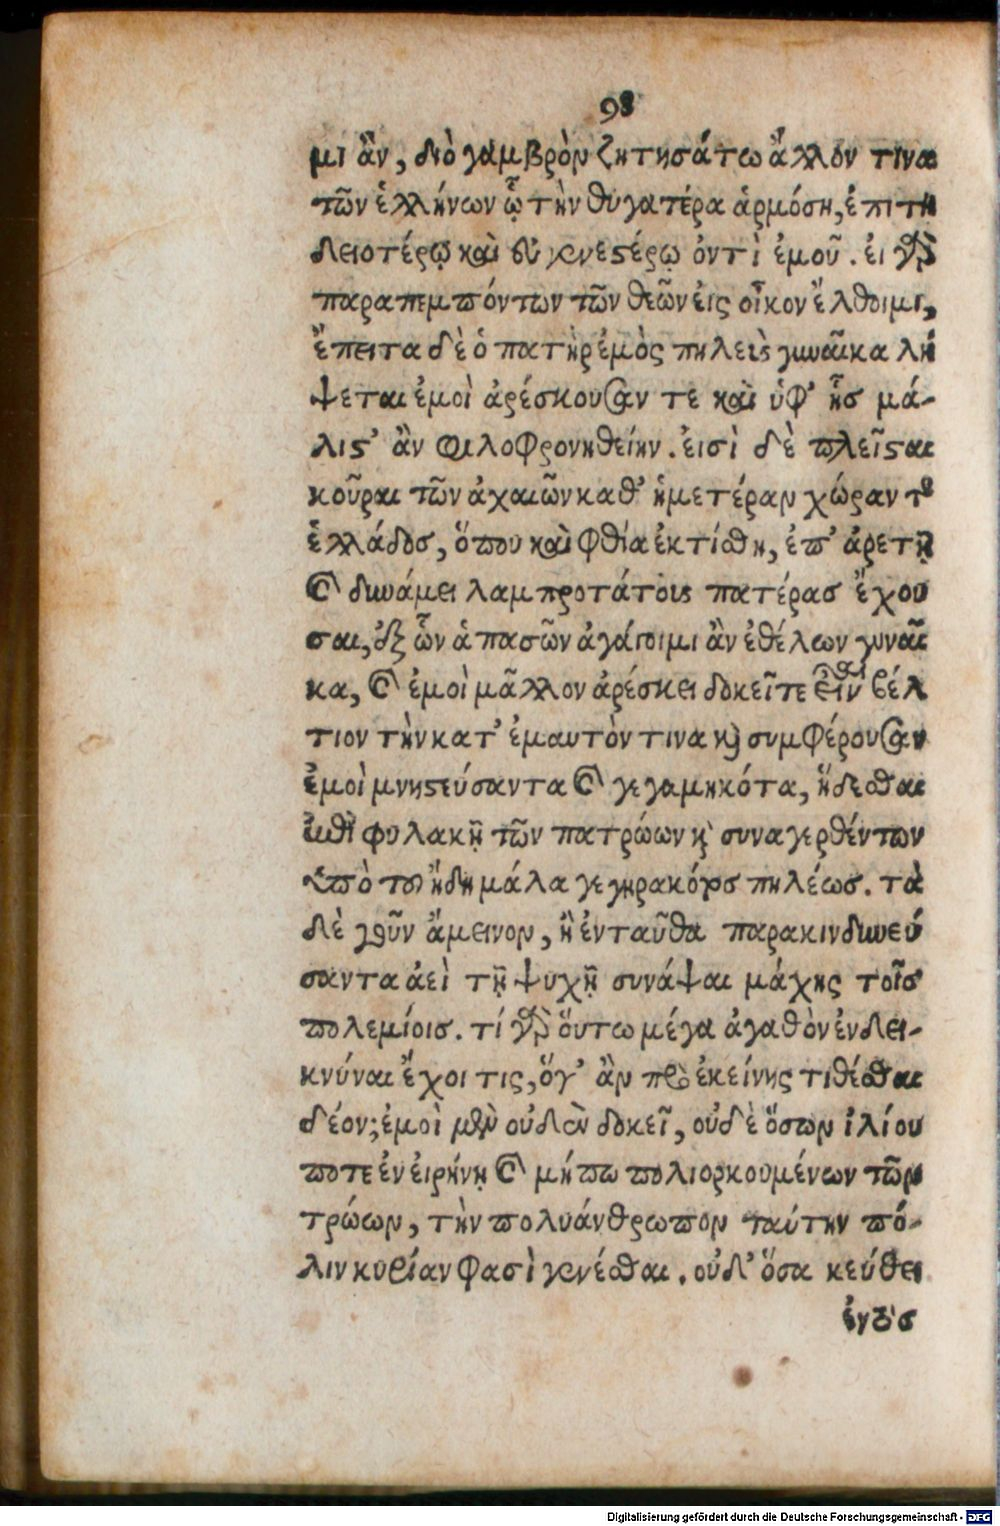 98
μι ἂν, διὸ γαμβρὸν ζητησάτω ἄλλον τινα
τῶν ἑλλήνων ᾧ τὴν θυγατέρα ἁρμόση, ἐπιτη
δειοτέρῳ καὶ οὐ γενεστέρῳ ὄντὶ ἐμοῦ. εἰ γὰρ
παραπεμπόντων τῶν θεῶν εἰς οἶκον ἔλθοιμι,
ἔπειτα δὲ ὁ πατὴρ ἐμὸς πηλεὺς γυναῖκα λή
ψεται ἐμοὶ ἀρέσκουσαν τε καὶ ὑφ' ἧς μά-
λιστ' ἂν φιλοφρονηθείην. εἰσὶ δὲ πλεῖσται
κοῦραι τῶν ἀχαιῶν καθ' ἡμετέραν χώραν τῆς
ἑλλάδος, ὅπου καὶ φθία ἐκτίσθη, ἐπ' ἀρετῇ
καὶ δυνάμει λαμπροτάτους πατέρας ἔχου
σαι, ἐξ ὧν ἁπασῶν ἀγάγοιμι ἂν ἐθέλων γυναῖ
κα, καὶ ἐμοὶ μᾶλλον ἀρέσκει δοκεῖτε εἶναι βέλ
τιον τὴν κατ' ἐμαυτόν τινα καὶ συμφέρουσαν
ἐμοὶ μνηστεύσαντα καὶ γεγαμηκότα, ἥδεσθαι
ἐπὶ φυλακῇ τῶν πατρώων καὶ συναγερθέντων
ὑπὸ τοῦ ἤδη μάλα γεγηρακότος πηλέως. τὰ
δὲ γοῦν ἄμεινον, ἢ ἐνταῦθα παρακινδυνεύ
σαντα ἀεὶ τῇ ψυχῇ συνάψαι μάχης τοῖς
πολεμίοις. τί γὰρ οὕτω μέγα ἀγαθὸν ἐνδει-
κνύναι ἔχοι τις, ὅγ' ἂν πρὸ ἐκείνης τιθέσθαι
δέον; ἐμοὶ μὲν οὐδὲν δοκεῖ, οὐδὲ ὅσων ἰλίου
ποτε ἐν εἰρήνῃ καὶ μήπω πολιορκουμένων τῶν
τρώων, τὴν πολυάνθρωπον ταύτην πό-
λιν κυρίαν φασὶ γενέσθαι. οὐδ' ὅσα κεύθει
ἐντὸς
Digitalisierung gefördert durch die Deutsche Forschungsgemeinschaft - DFG